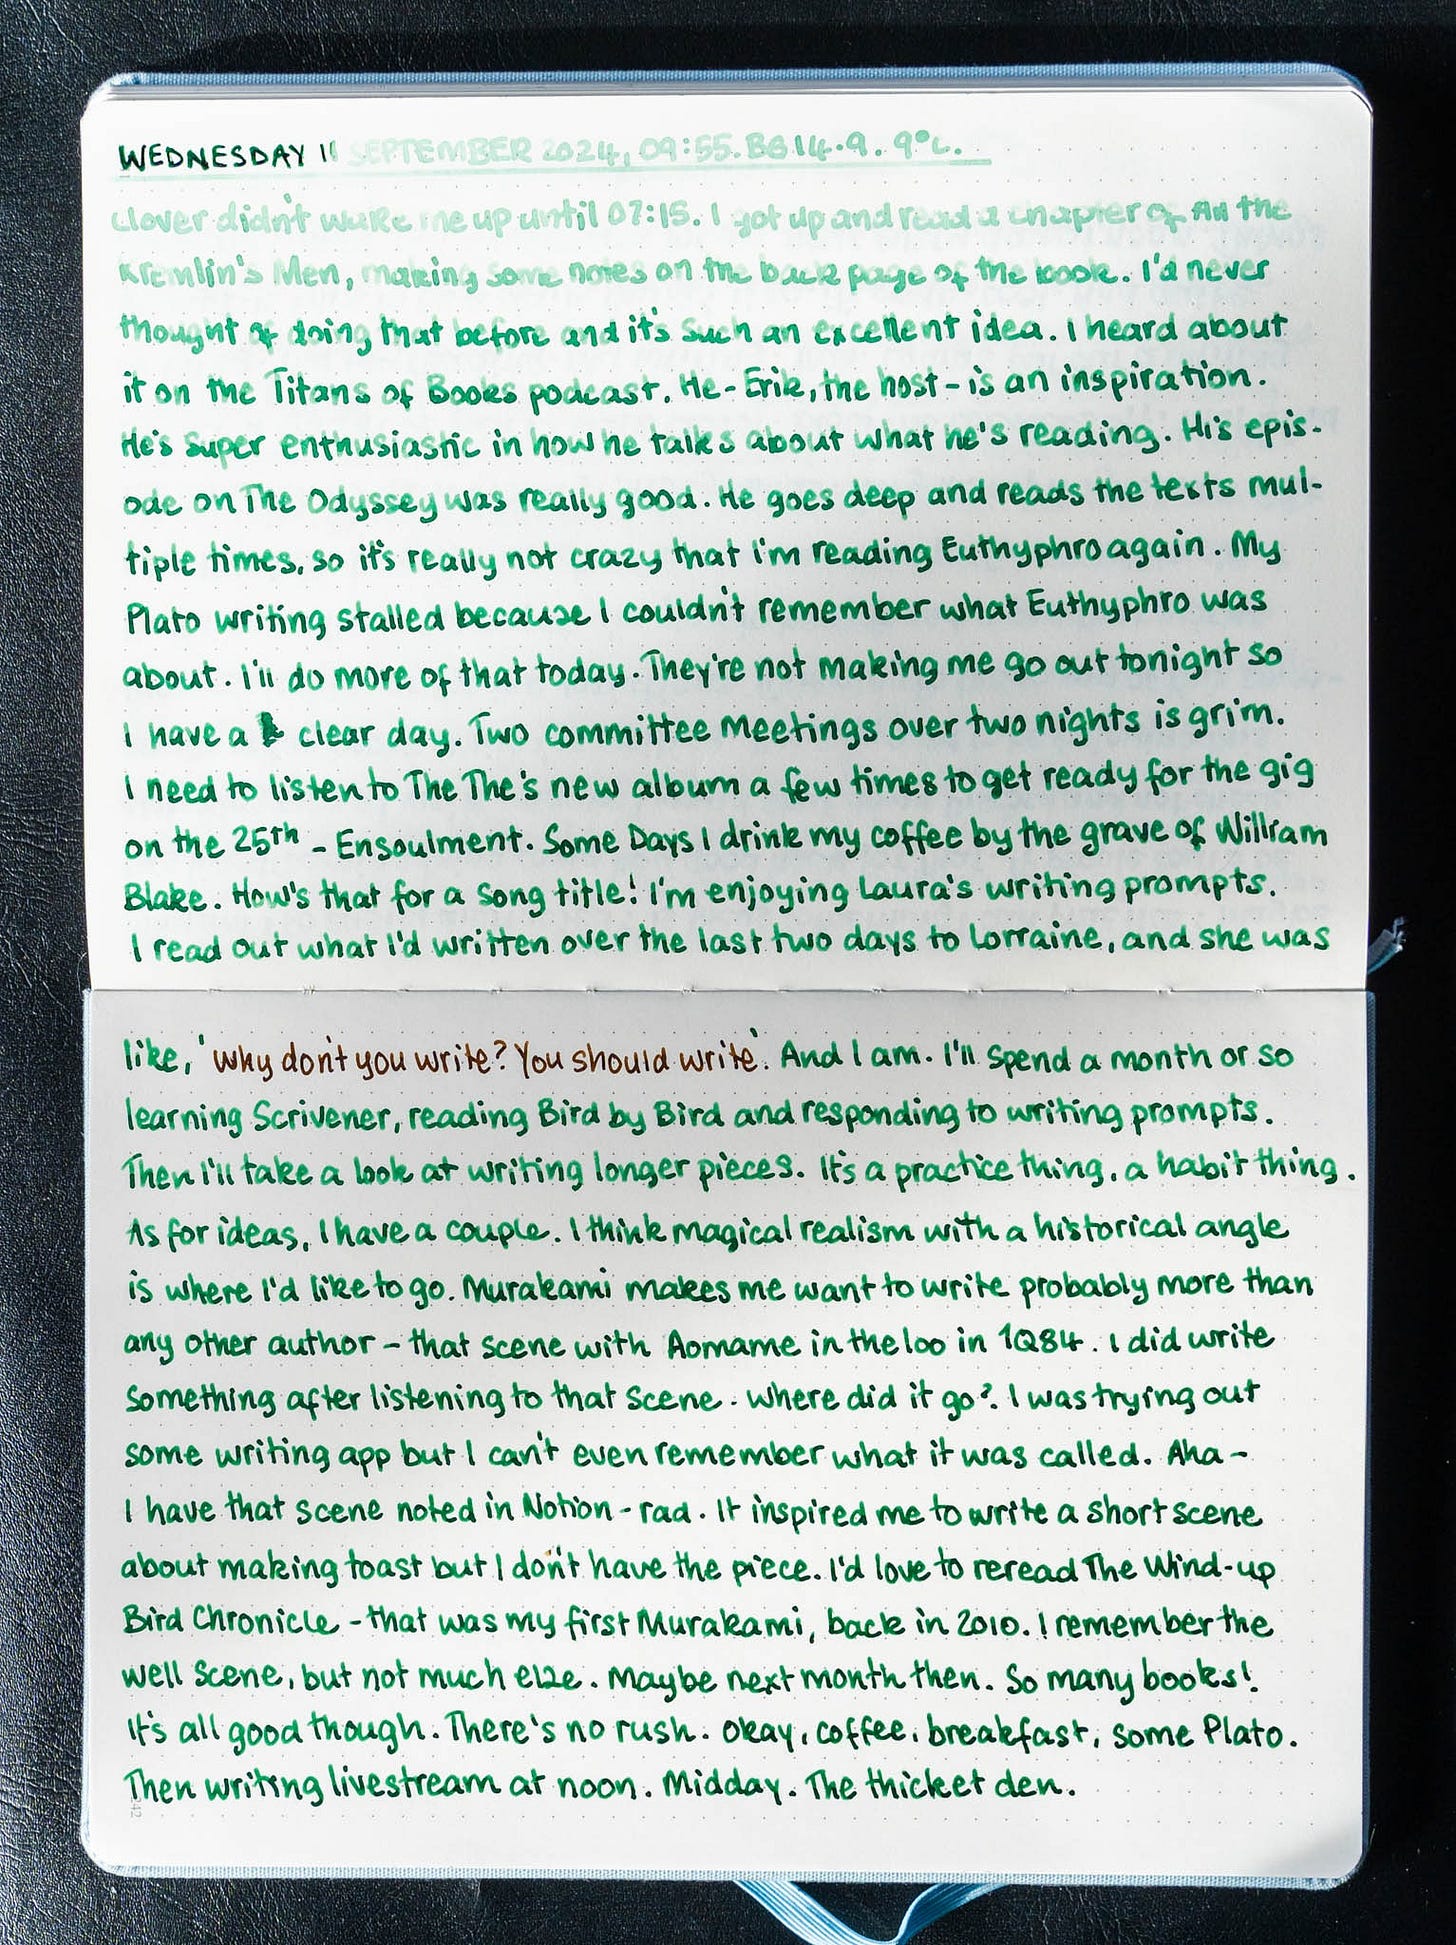 WEDNESDAY 11 SEPTEMBER 2024, 09:55. BG 14.9. 9°C.
Clover didn't wake me up until 07:15. I got up and read a chapter of All the
Kremlin's Men, making some notes on the back page of the book. I'd never
thought of doing that before and it's such an excellent idea. I heard about
it on the Titans of Books podcast. He - Erik, the host - is an inspiration.
He's super enthusiastic in how he talks about what he's reading. His epis-
ode on The Odyssey was really good. He goes deep and reads the texts mul-
tiple times, so it's really not crazy that I'm reading Euthyphro again. My
Plato writing stalled because I couldn't remember what Euthyphro was
about. I'll do more of that today. They're not making me go out tonight so
I have a clear day. Two committee meetings over two nights is grim.
I need to listen to The The's new album a few times to get ready for the gig
on the 25th - Ensoulment. Some Days I drink my coffee by the grave of William
Blake. How's that for a song title! I'm enjoying Laura's writing prompts.
I read out what I'd written over the last two days to Lorraine, and she was
like, 'why don't you write? You should write'. And I am. I'll spend a month or so
learning Scrivener, reading Bird by Bird and responding to writing prompts.
Then I'll take a look at writing longer pieces. It's a practice thing, a habit thing.
As for ideas, I have a couple. I think magical realism with a historical angle
is where I'd like to go. Murakami makes me want to write probably more than
any other author - that scene with Aomame in the loo in 1Q84. I did write
something after listening to that scene. Where did it go? I was trying out
some writing app but I can't even remember what it was called. Aha -
I have that scene noted in Notion - rad. It inspired me to write a short scene
about making toast but I don't have the piece. I'd love to reread The Wind-up
Bird Chronicle - that was my first Murakami, back in 2010. I remember the
well scene, but not much else. Maybe next month then. So many books!
It's all good though. There's no rush. Okay, coffee, breakfast, some Plato.
Then writing livestream at noon. Midday. The thicket den.
42